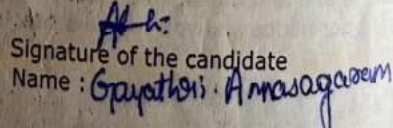 Signature of the candidate
Name : Gayathri. Annasagaram